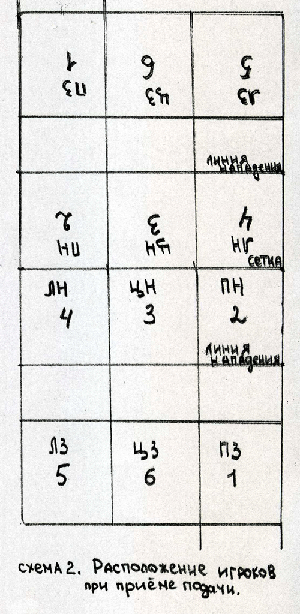 1 6 5
ПЗ ЦЗ ЛЗ
ЛИНИЯ
НАПАДЕНИЯ
2 3 4
ПН ЦН ЛН
СЕТКА
ЛН ЦН ПН
4 3 2
ЛИНИЯ
НАПАДЕНИЯ
ЛЗ ЦЗ ПЗ
5 6 1
СХЕМА 2. РАСПОЛОЖЕНИЕ ИГРОКОВ
ПРИ ПРИЁМЕ ПОДАЧИ.